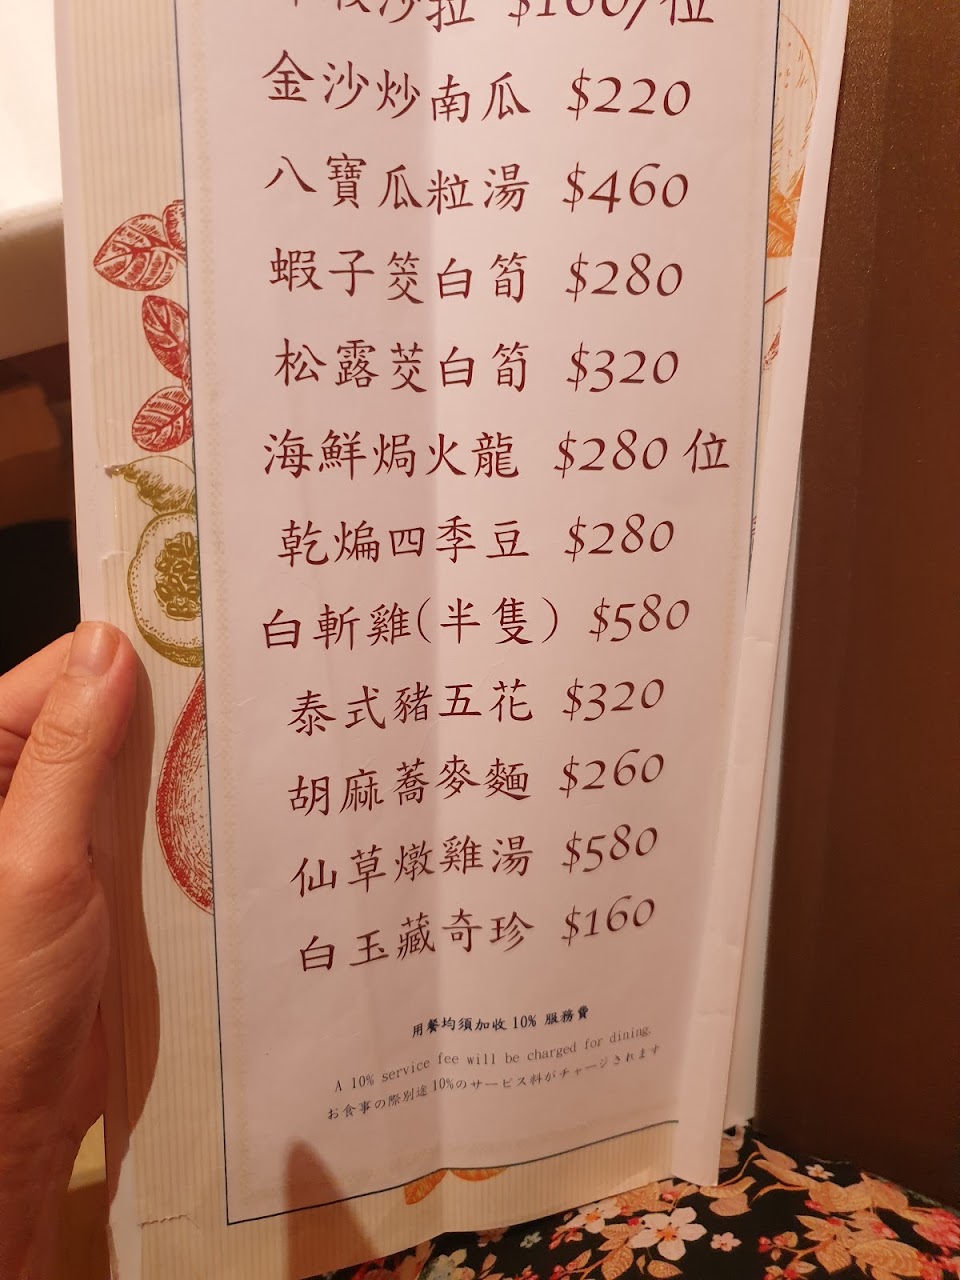 沙拉 $160/位
金沙炒南瓜 $220
八寶瓜粒湯 $460
蝦子筊白筍 $280
松露茭白筍 $320
海鮮焗火龍 $280 位
乾煸四季豆 $280
白斬雞(半隻) $580
泰式豬五花 $320
胡麻蕎麥麵 $260
仙草燉雞湯 $580
白玉藏奇珍 $160
用餐均須加收10% 服務費
A 10% service fee will be charged for dining.
お食事の際別途10%のサービス料がチャージされます